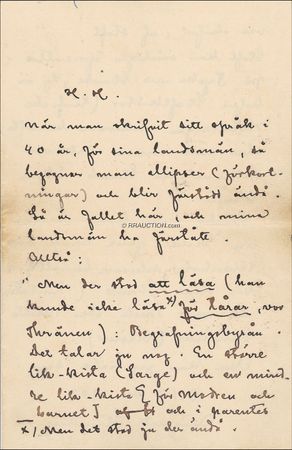 H. H.
När man skrifvit sitt språk i
40 år, för sina landsmän, så
begagnar man ellipser (förkort-
ningar) och blir förstådd ändå.
Så är fallet här, och mina
landsmän ha förstått.
Alltså:
"Men der stod att läsa (han
kunde icke läsa x) för tårar, vor
Thränen): Begrafningsbyrån.
Det talar ju nog. En större
lik-kista (Sarge) och en mind-
re lik-kista [för modren och
barnet] och i parentes
x/ Men det stod ju der ändå.
© RRAUCTION.COM